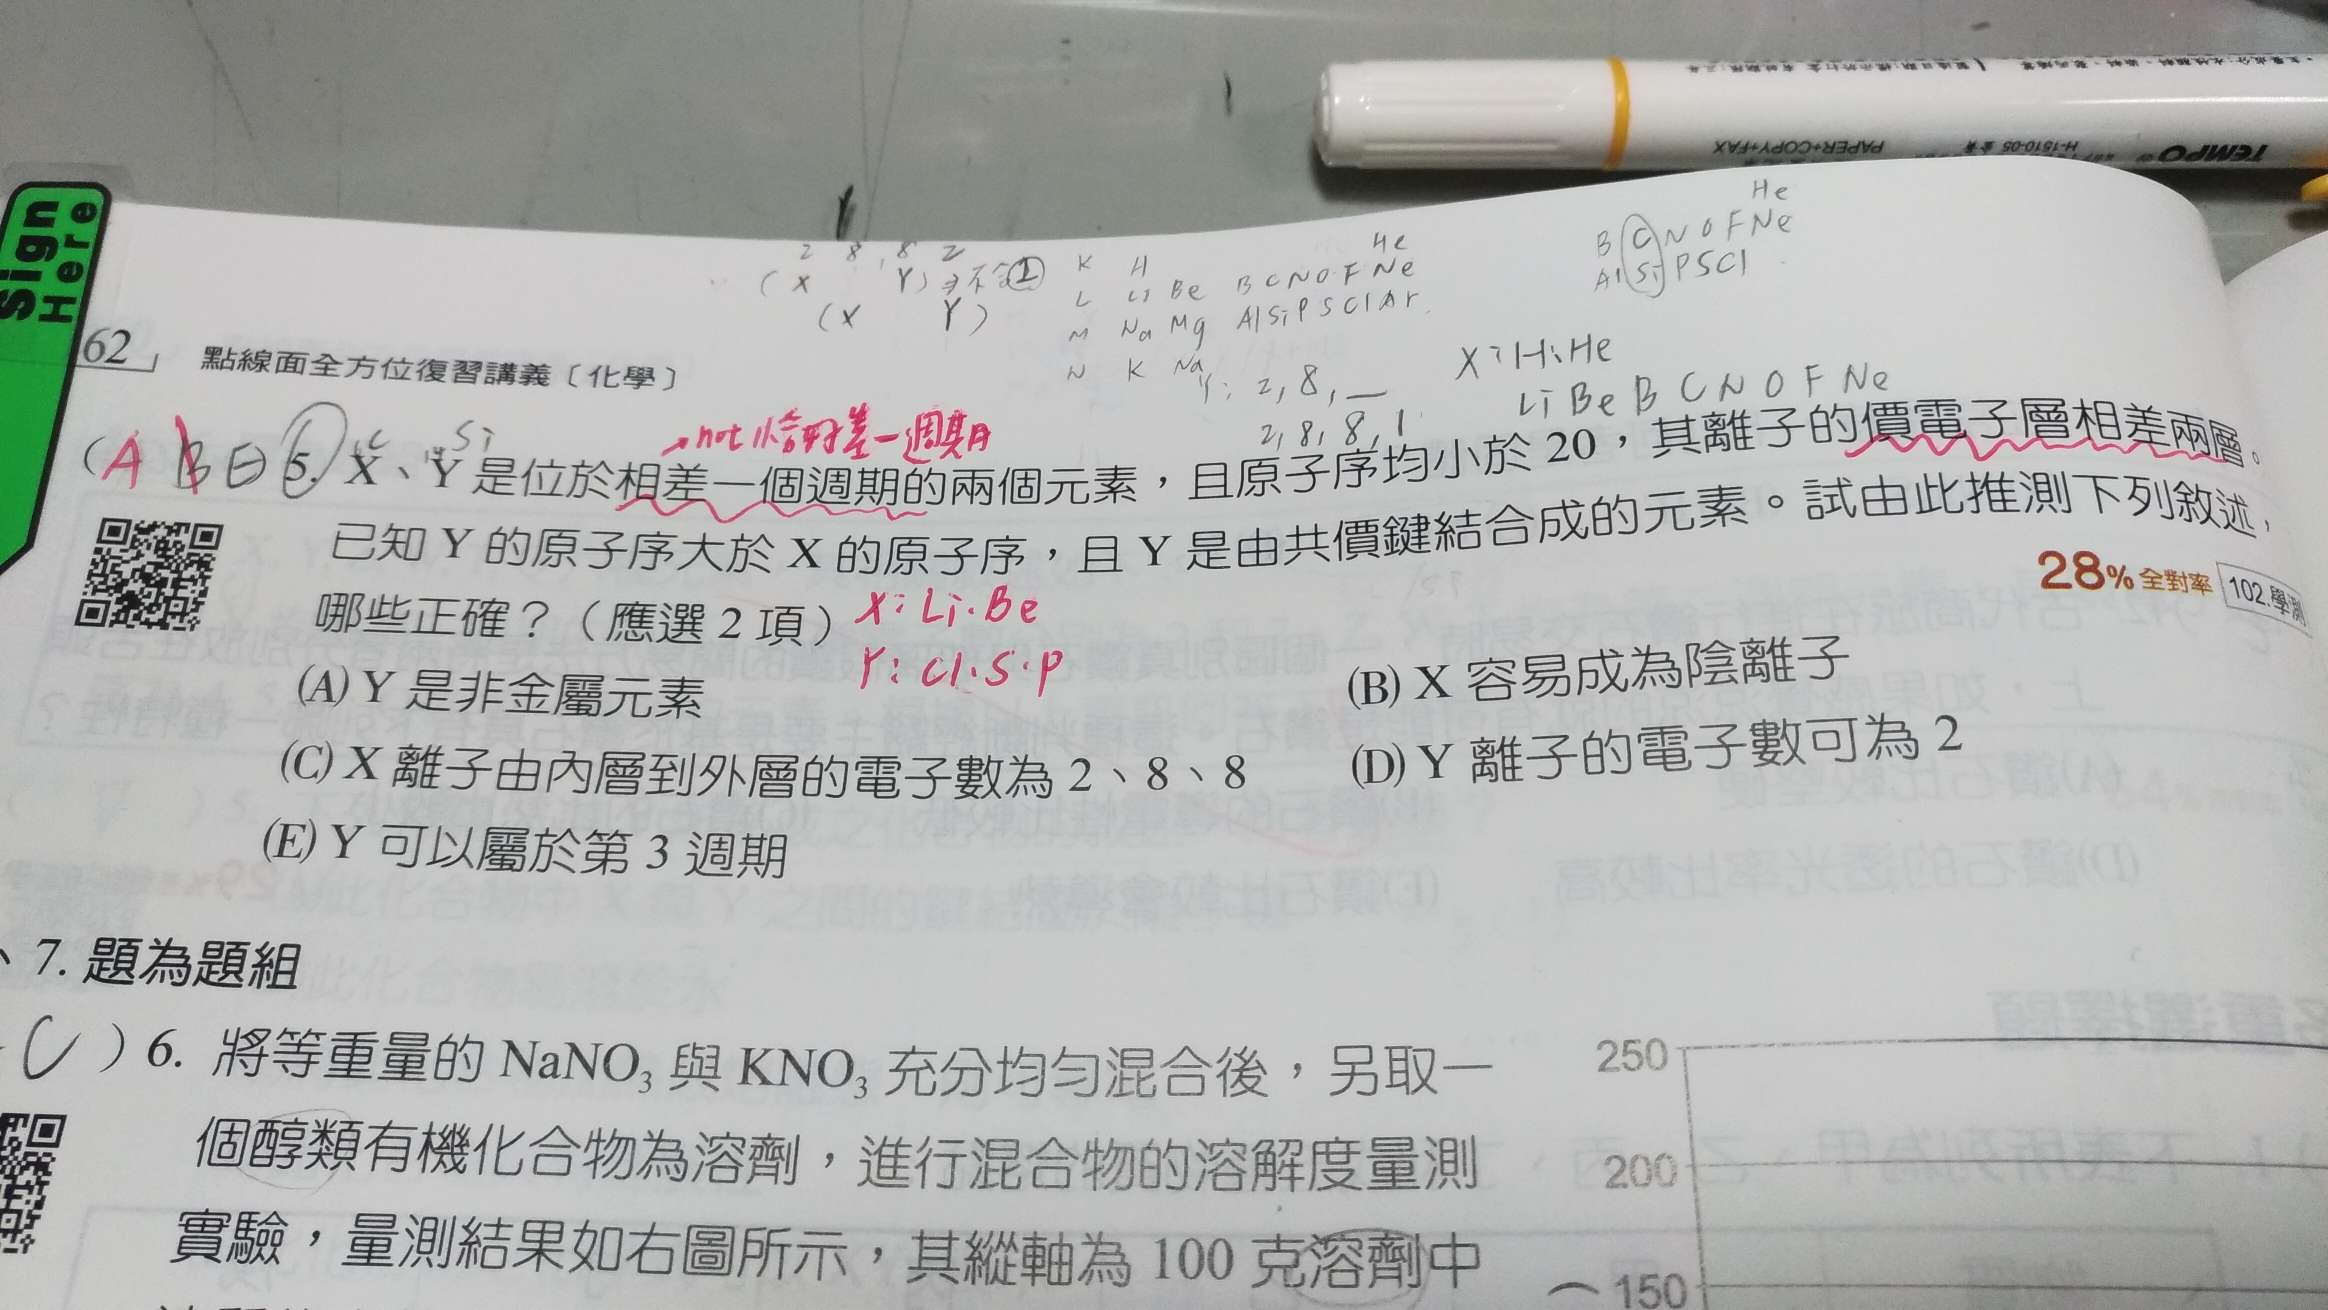 TEMPO
H-1510-05
PAPER+COPY+FAX
Sign
Here
He
B C N O F Ne
Al Si P S Cl
2 8,8 2
(X Y)
(X Y)
He
K H
L Li Be B C N O F Ne
M Na Mg Al Si P S Cl Ar
N K Na
Y: 2,8,_
2,8,8,1
X: H、He
Li Be B C N O F Ne
62
點線面全方位復習講義〔化學〕
not 恰好差一週期
C Si
(A B E 5. X、Y 是位於相差一個週期的兩個元素，且原子序均小於 20，其離子的價電子層相差兩層。
已知 Y 的原子序大於 X 的原子序，且 Y 是由共價鍵結合成的元素。試由此推測下列敘述，
哪些正確？（應選 2 項）
28% 全對率 102.學測
X: Li.Be
Y: Cl.S.P
(A) Y 是非金屬元素
(B) X 容易成為陰離子
(C) X 離子由內層到外層的電子數為 2、8、8
(D) Y 離子的電子數可為 2
(E) Y 可以屬於第 3 週期
、7. 題為題組
C ) 6. 將等重量的 NaNO₃ 與 KNO₃ 充分均勻混合後，另取一
個醇類有機化合物為溶劑，進行混合物的溶解度量測
實驗，量測結果如右圖所示，其縱軸為 100 克溶劑中
250
200
150